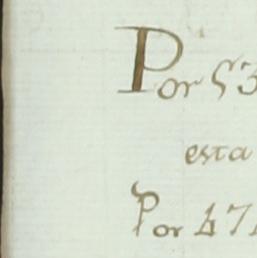 Por 53
esta
Por 47